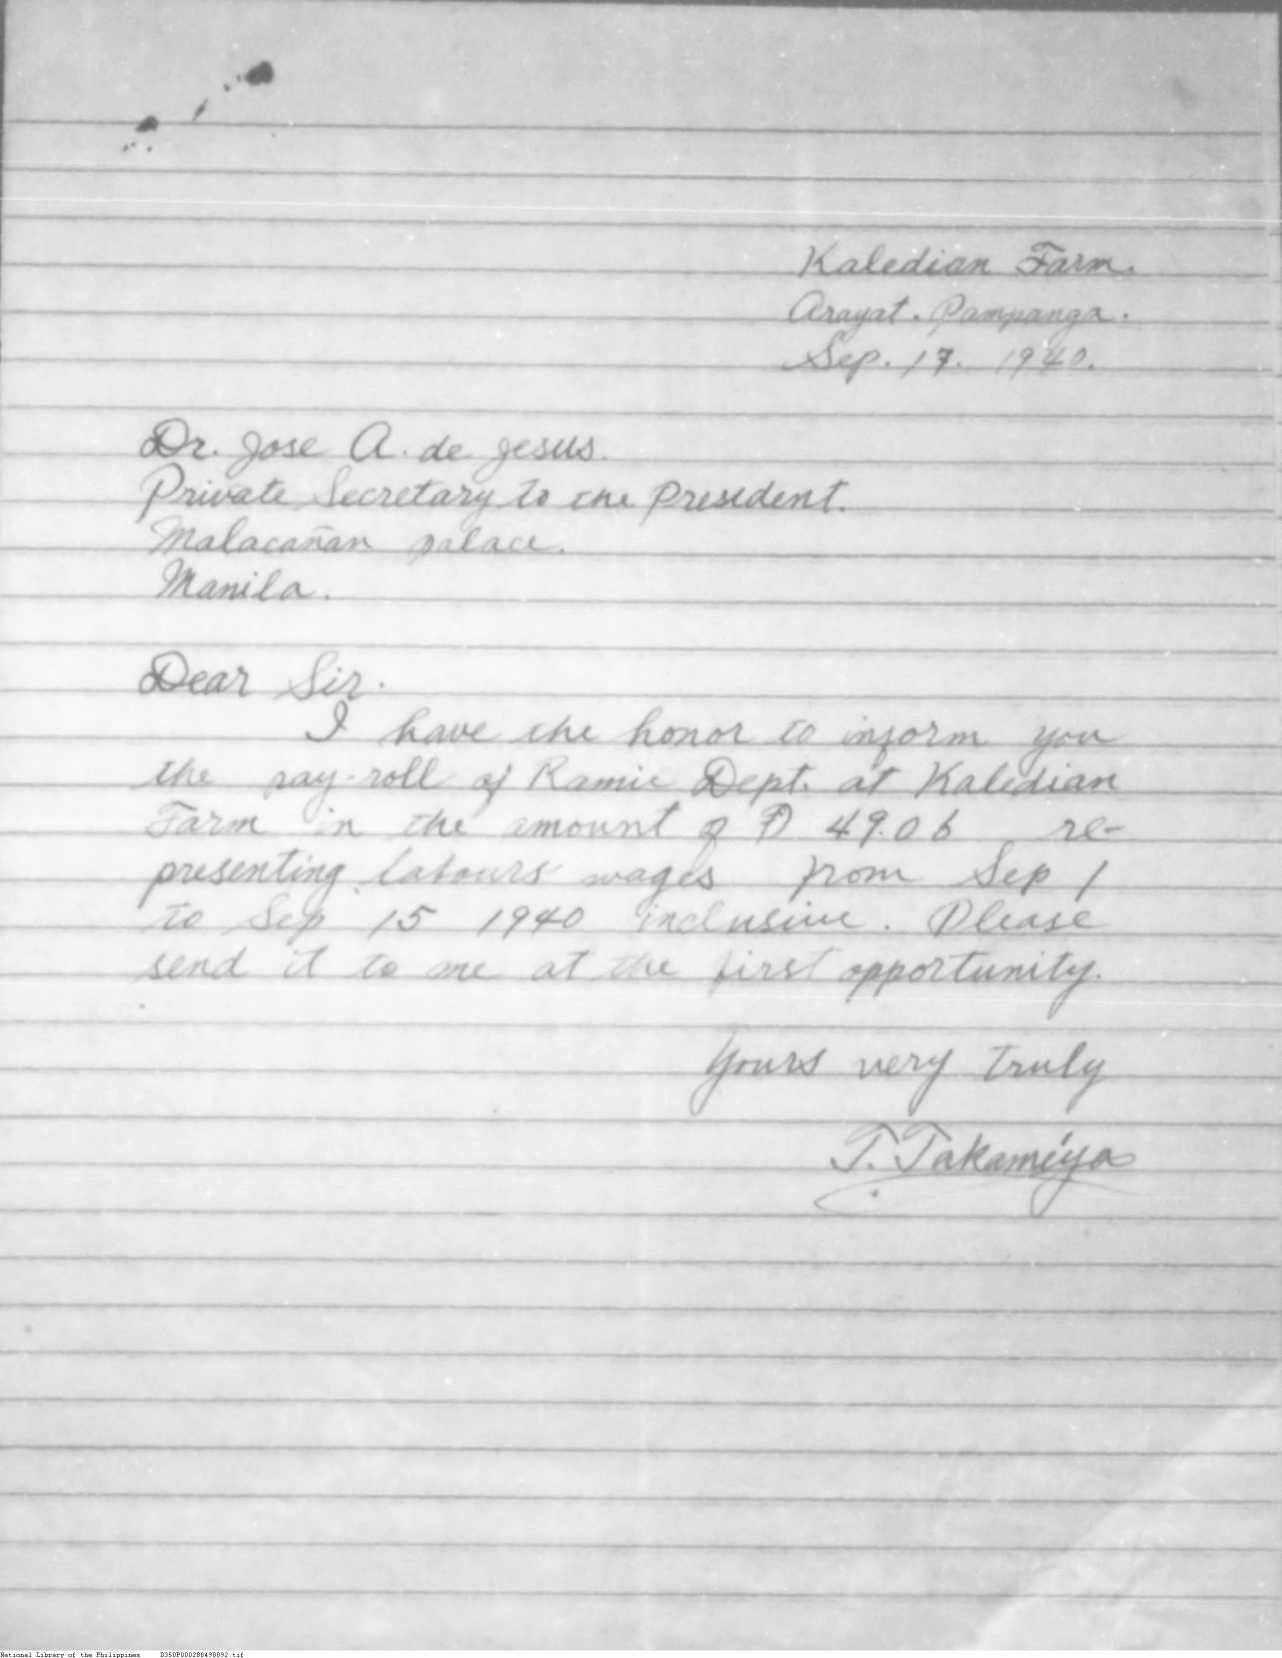 Kaledian Farm.
Arayat. Pampanga.
Sep. 17. 1940.
Dr. Jose A. de Jesus.
Private Secretary to the President.
Malacañan palace.
Manila.
Dear Sir.
I have the honor to inform you
the pay-roll of Ramie Dept. at Kaledian
Farm in the amount of ₱ 49.06 re-
presenting labours wages from Sep 1
to Sep 15 1940 inclusive. Please
send it to me at the first opportunity.
Yours very truly
T. Takamiya
National Library of the Philippines D350P000288498892.tif